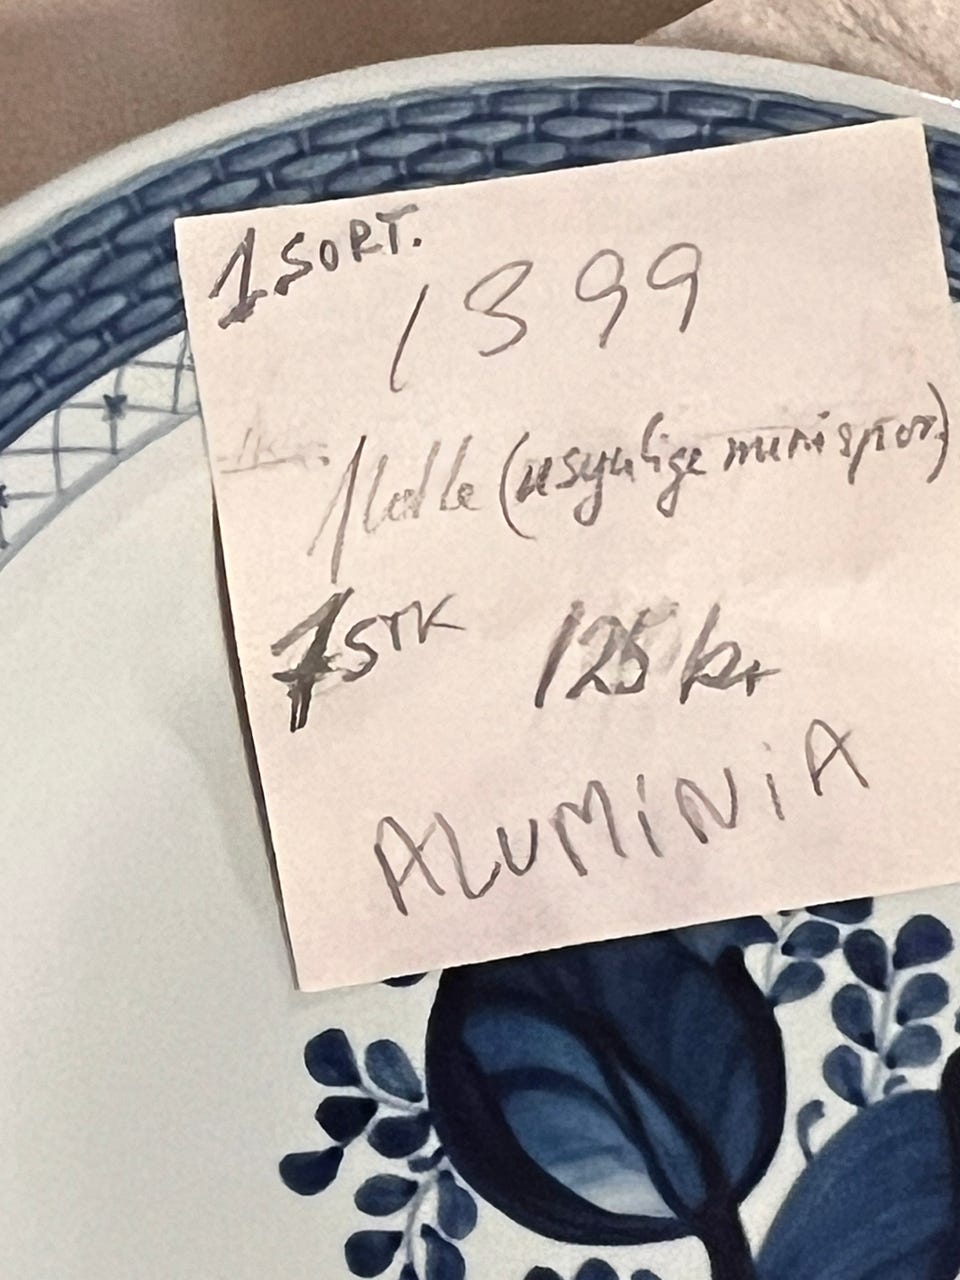 1 SORT.
1899
(usynlige minispor)
1 STK 125 kr
ALUMiNiA